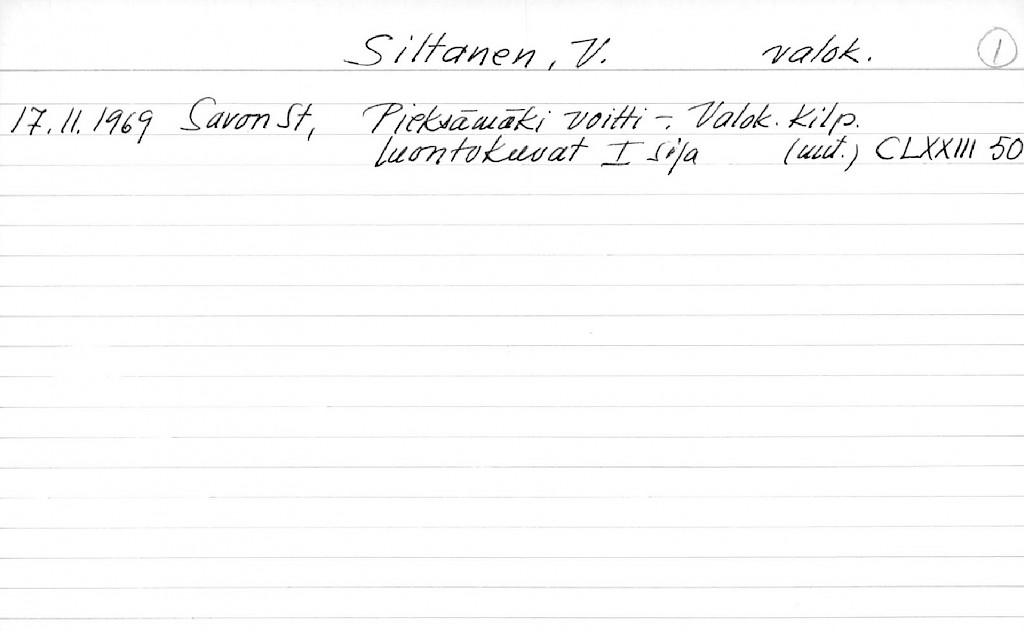 Siltanen, V. valok. 1
17.11.1969 Savon St, Pieksämäki voitti -. Valok. kilp.
luontokuvat I sija (uut.) CLXXIII 50